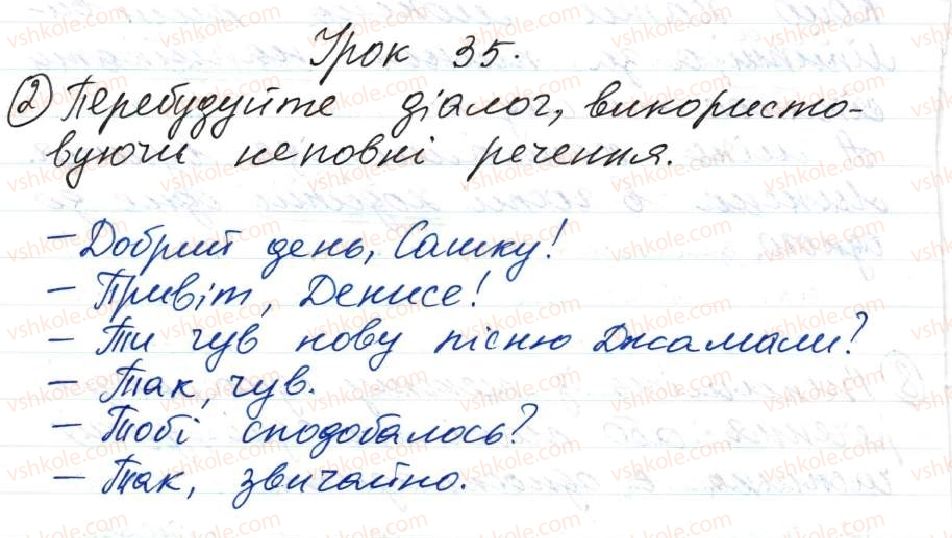 Урок 35.
2 Перебудуйте діалог, використо-
вуючи неповні речення.
- Добрий день, Сашку!
- Привіт, Денисе!
- Ти чув нову пісню Джамали?
- Так, чув.
- Тобі сподобалось?
- Так, звичайно.